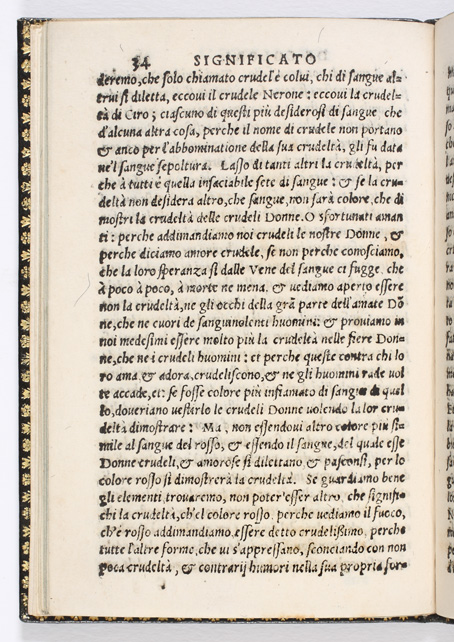 34 SIGNIFICATO
deremo, che solo chiamato crudel'è colui, chi di sangue al-
trui si diletta, eccoui il crudele Nerone: eccoui la crudel-
tà di Ciro; ciascuno di questi più desiderosi di sangue che
d'alcuna altra cosa, perche il nome di crudele non portano
& anco per l'abbominatione della sua crudeltà, gli fu data
ne'l sangue sepoltura. Lasso di tanti altri la crudeltà, per
che à tutti è quella insaciabile sete di sangue: & se la cru-
deltà non desidera altro, che sangue, non sarà colore, che di
mostri la crudeltà delle crudeli Donne. O sfortunati aman
ti: perche addimandiamo noi crudeli le nostre Donne, &
perche diciamo amore crudele, se non perche conosciamo,
che la loro speranza si dalle Vene del sangue ci fugge, che
à poco à poco, à morte ne mena. & uediamo aperto essere
non la crudeltà, ne gli occhi della grã parte dell'amate Dõ
ne, che ne cuori de sanguinolenti huomini: & prouiamo in
noi medesimi essere molto più la crudeltà nelle fiere Don-
ne, che ne i crudeli huomini: et perche queste contra chi lo
ro ama, & adora, crudeliscono, & ne gli huomini rade uol
te accade, et: se fosse colore più infiamato di sangue di quel
lo, doueriano uestirlo le crudeli Donne uolendo la lor cru-
deltà dimostrare: Ma, non essendoui altro colore più si-
mile al sangue del rosso, & essendo il sangue, del quale esse
Donne crudeli, & amorose si dilettano, & pasconsi, per lo
colore rosso si dimostrerà la crudeltà. Se guardiamo bene
gli elementi trouaremo, non poter'esser altro, che signifi-
chi la crudeltà, ch'el colore rosso, perche uediamo il fuoco,
ch'è rosso addimandiamo, essere detto crudelißimo, perche
tutte l'altre forme, che ui s'appressano, sconciando con non
poca crudeltà, & contrarij humori nella sua propria for-